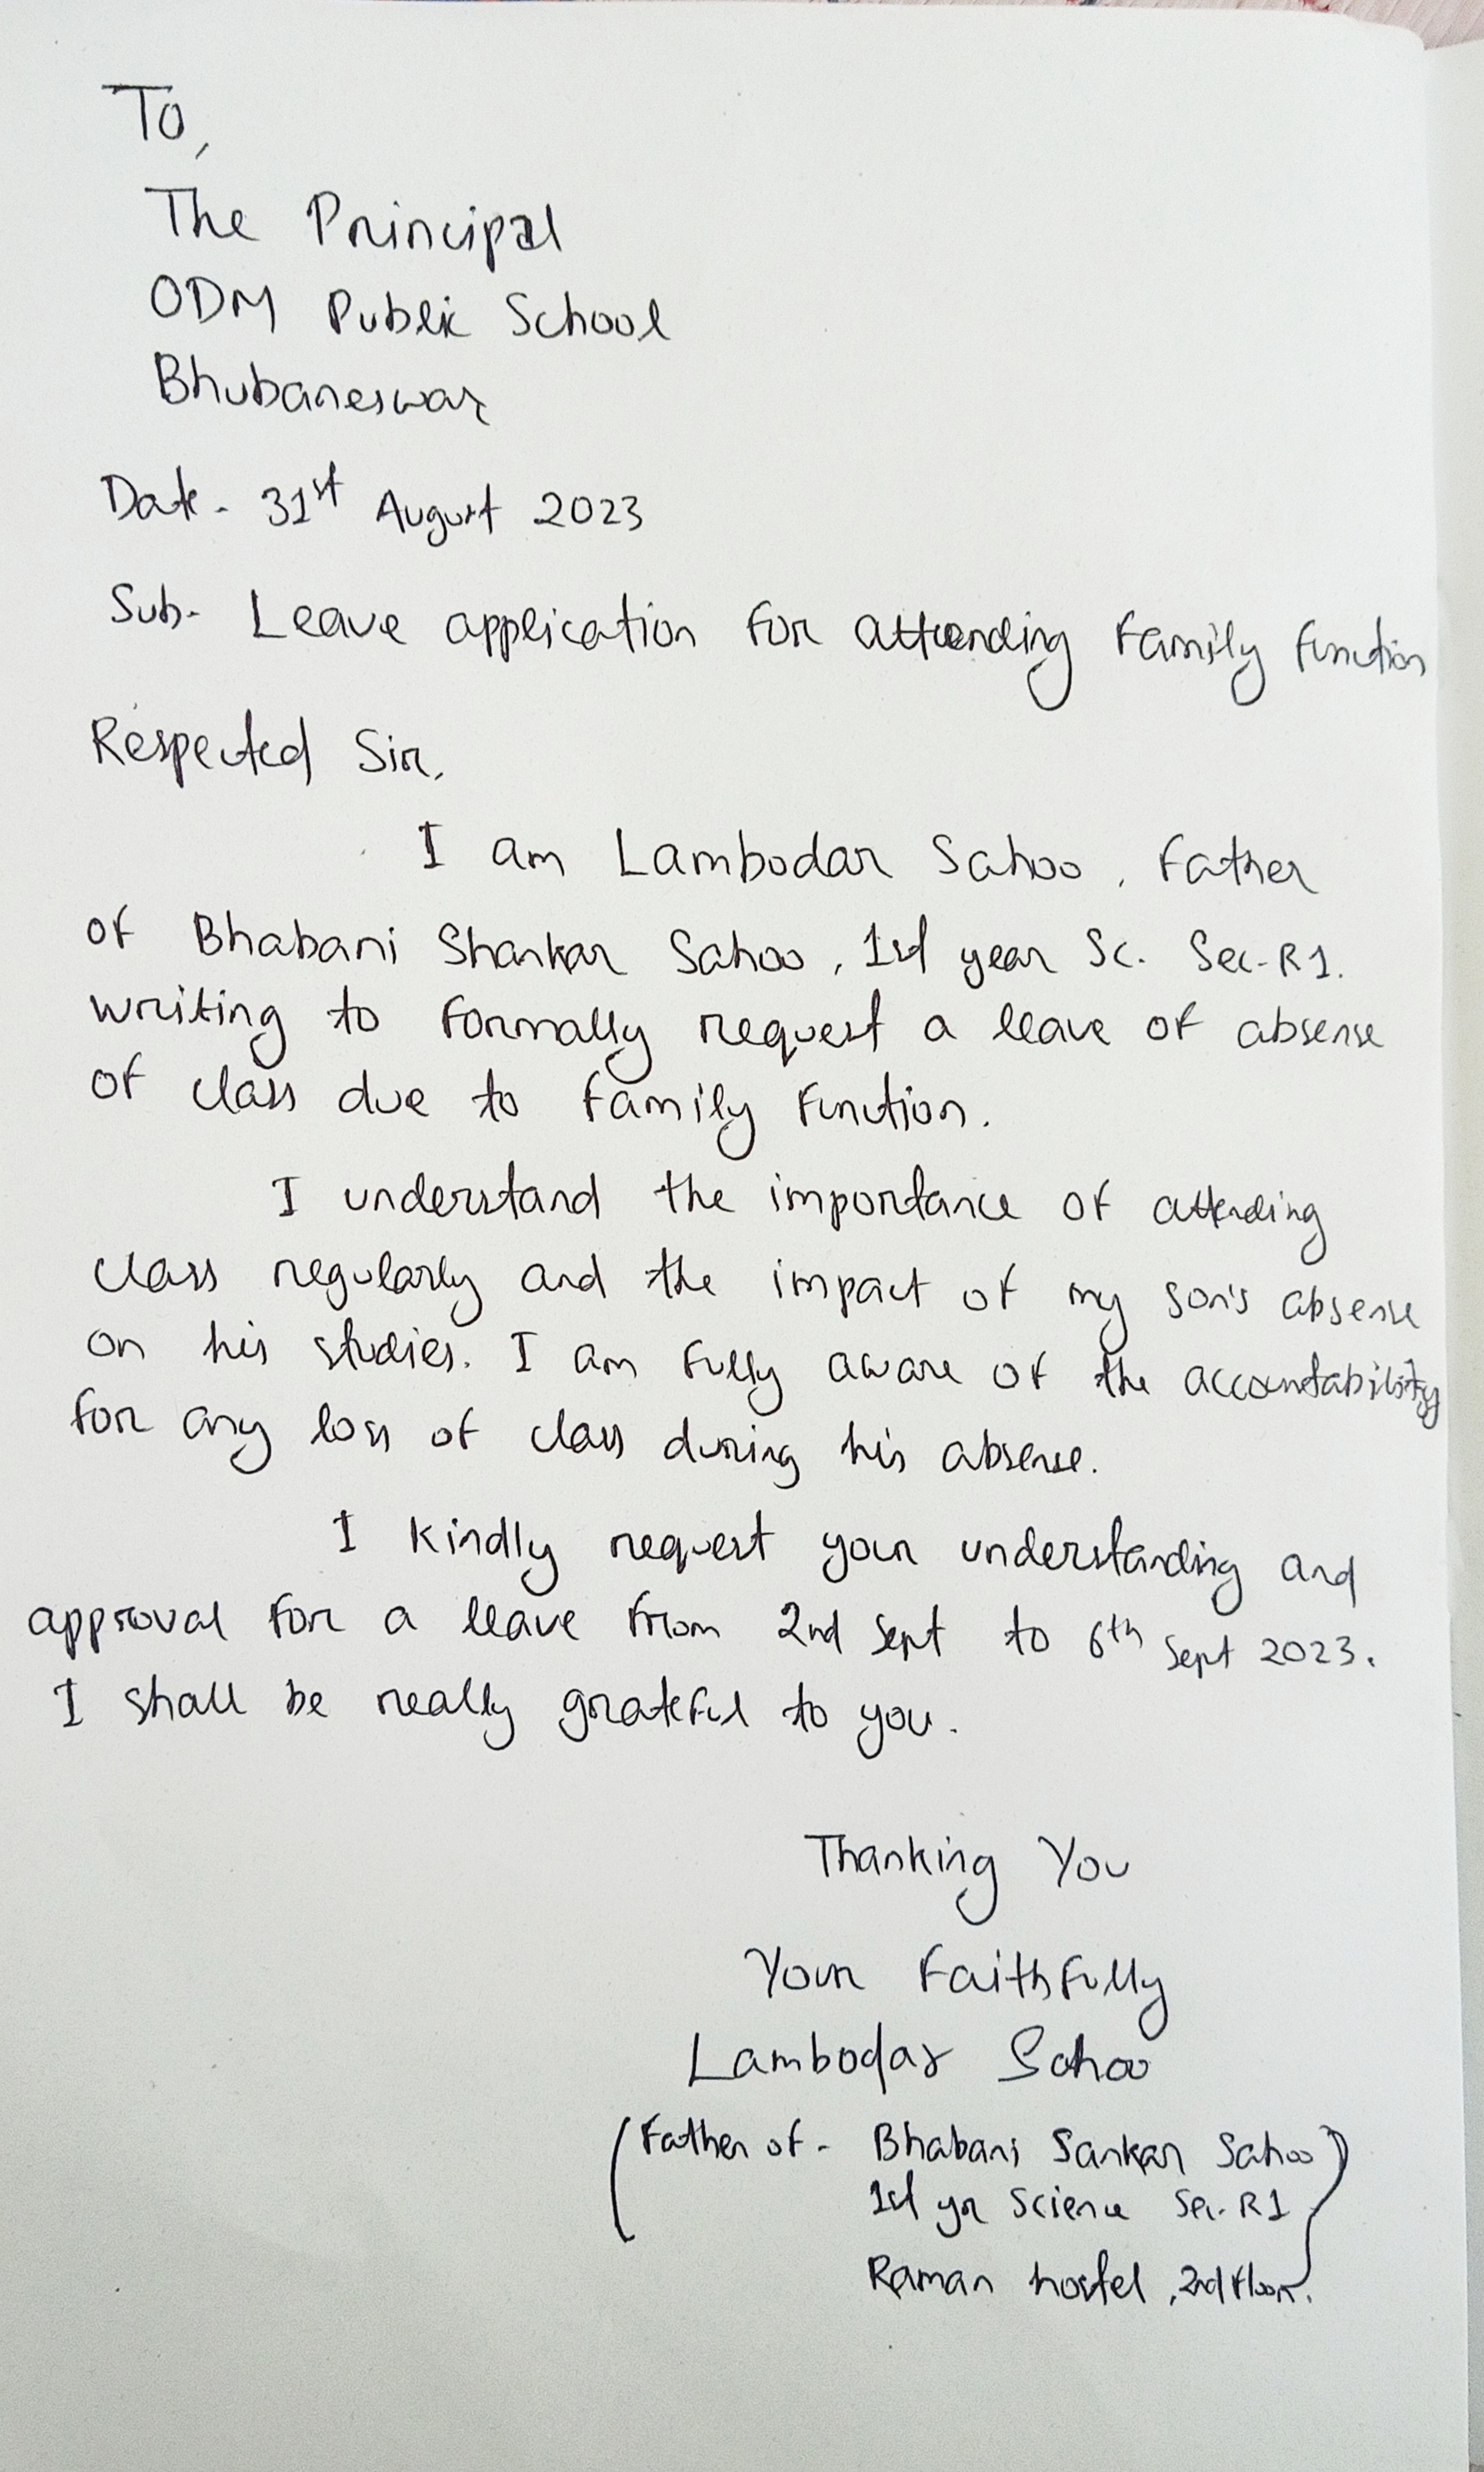 To,
The Principal
ODM Public School
Bhubaneswar
Date - 31st August 2023
Sub- Leave application for attending family function
Respected Sir,
I am Lambodar Sahoo, Father
of Bhabani Shankar Sahoo, 1st year Sc. Sec-R1.
writing to formally request a leave of absense
of class due to family function.
I understand the importance of attending
class regularly and the impact of my son's absense
on his studies. I am fully aware of the accountability
for any loss of class during his absense.
I kindly request your understanding and
approval for a leave from 2nd Sept to 6th Sept 2023.
I shall be really grateful to you.
Thanking You
Your Faithfully
Lambodar Sahoo
(Father of - Bhabani Sankar Sahoo
1st yr Science Sec-R1
Raman hostel, 2nd floor.)